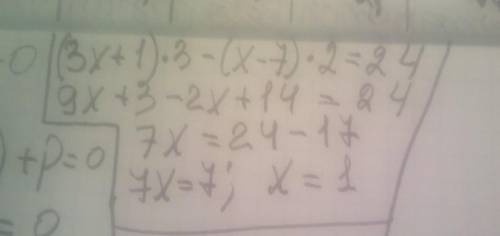 0 (3x+1)·3-(x-7)·2=24
9x+3-2x+14=24
7x=24-17
)+p=0
7x=7; x=1
=0